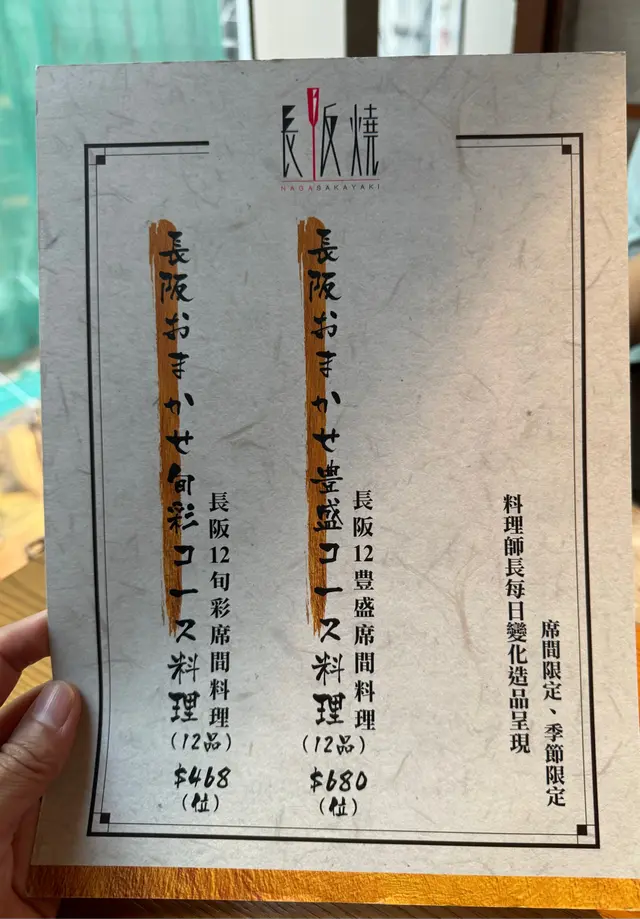 長坂燒
NAGASAKAYAKI
席間限定、季節限定
料理師長每日變化造品呈現
長阪12豐盛席間料理
長阪おまかせ豊盛コース料理
(12品)
$680
(位)
長阪12旬彩席間料理
長阪おまかせ旬彩コース料理
(12品)
$468
(位)